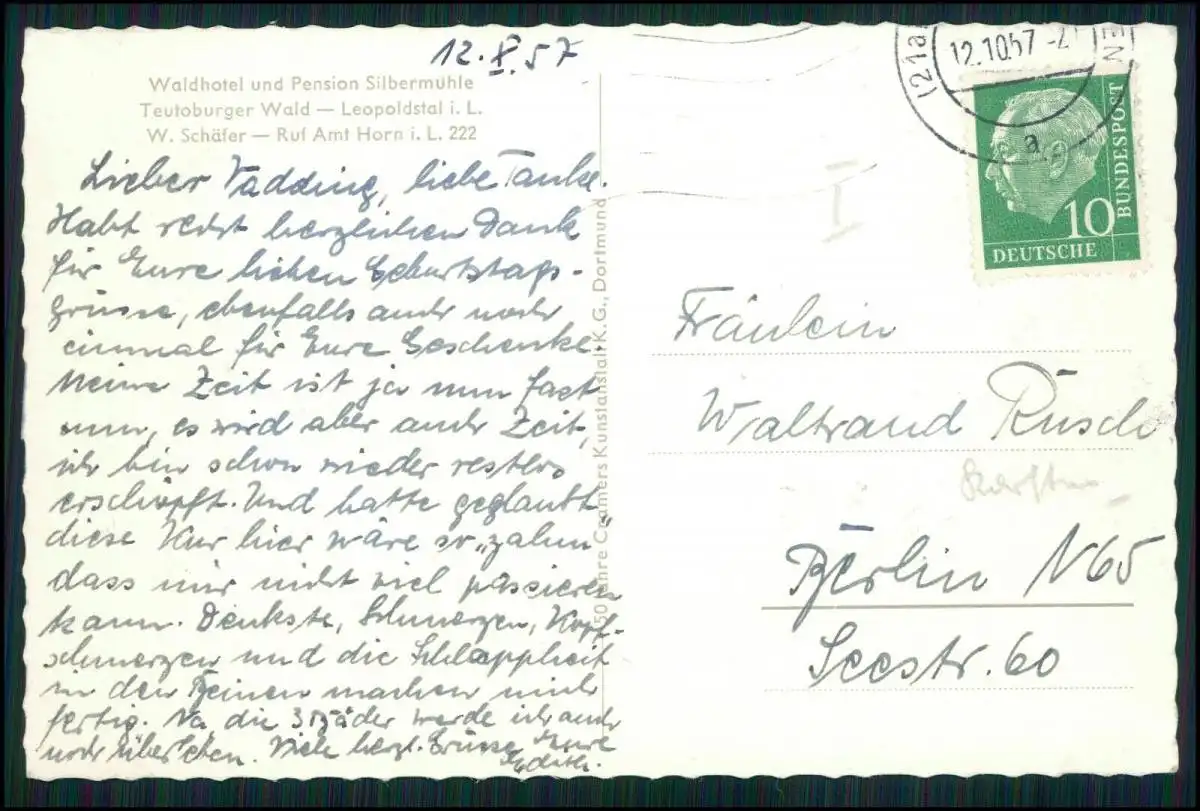 12.X.57
Waldhotel und Pension Silbermühle
Teutoburger Wald — Leopoldstal i. L.
W. Schäfer — Ruf Amt Horn i. L. 222
Lieber Vadding, liebe Tanke.
Habt recht herzlichen Dank
für Eure lieben Geburtstags-
grüsse, ebenfalls auch noch
einmal für Eure Geschenke.
Meine Zeit ist ja nun fast
um, es wird aber auch Zeit,
ich bin schon wieder restlos
erschöpft. Und hatte geglaubt
diese Kur hier wäre so „zahm"
dass mir nicht viel passieren
kann. Denkste, Schmerzen, Kopf-
schmerzen und die Schlappheit
in den Beinen machen mich
fertig. Na die 3 Bäder werde ich auch
noch überleben. Viele herzl. Grüsse Eure
Edith.
Cramers Kunstanstalt K.G., Dortmund
(21a
12.10.57
a
10
DEUTSCHE
BUNDESPOST
I
Fräulein
Waltraud Rüsch
Berlin N65
Seestr. 60